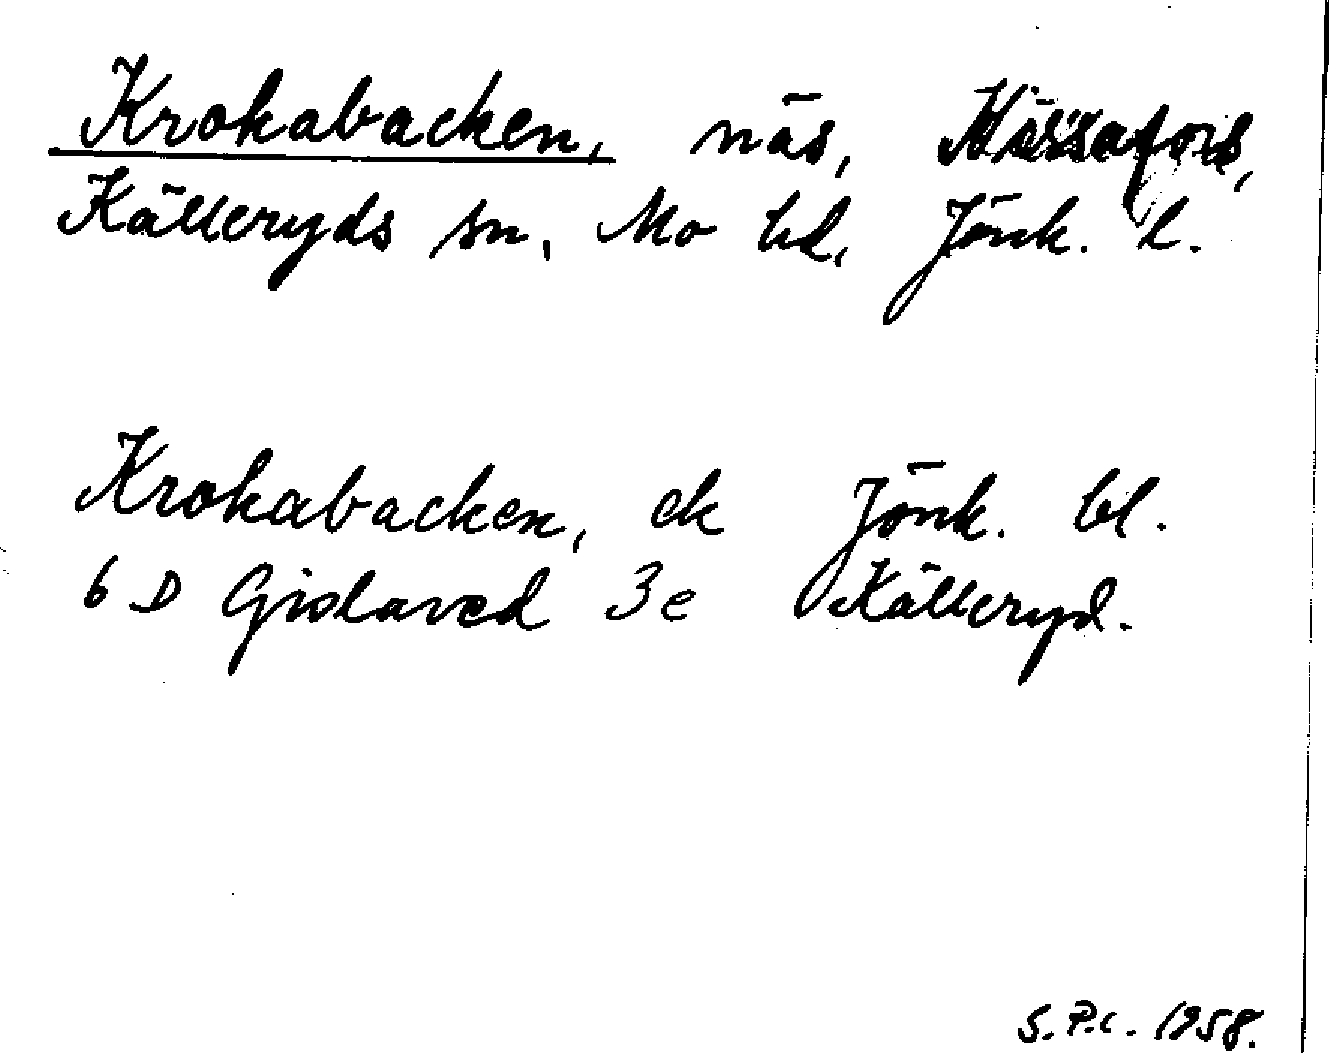 Krokabacken, näs,
Källeryds sn, Mo hd, Jönk. l.
Krokabacken, ek Jönk. bl.
6 D Gislaved 3e Källeryd.
S.P.C. 1958.